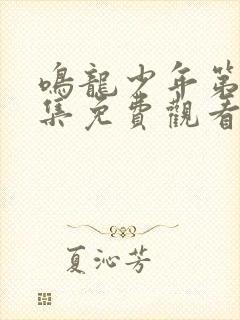 鳴龍少年第
集免費觀看
夏沁芳